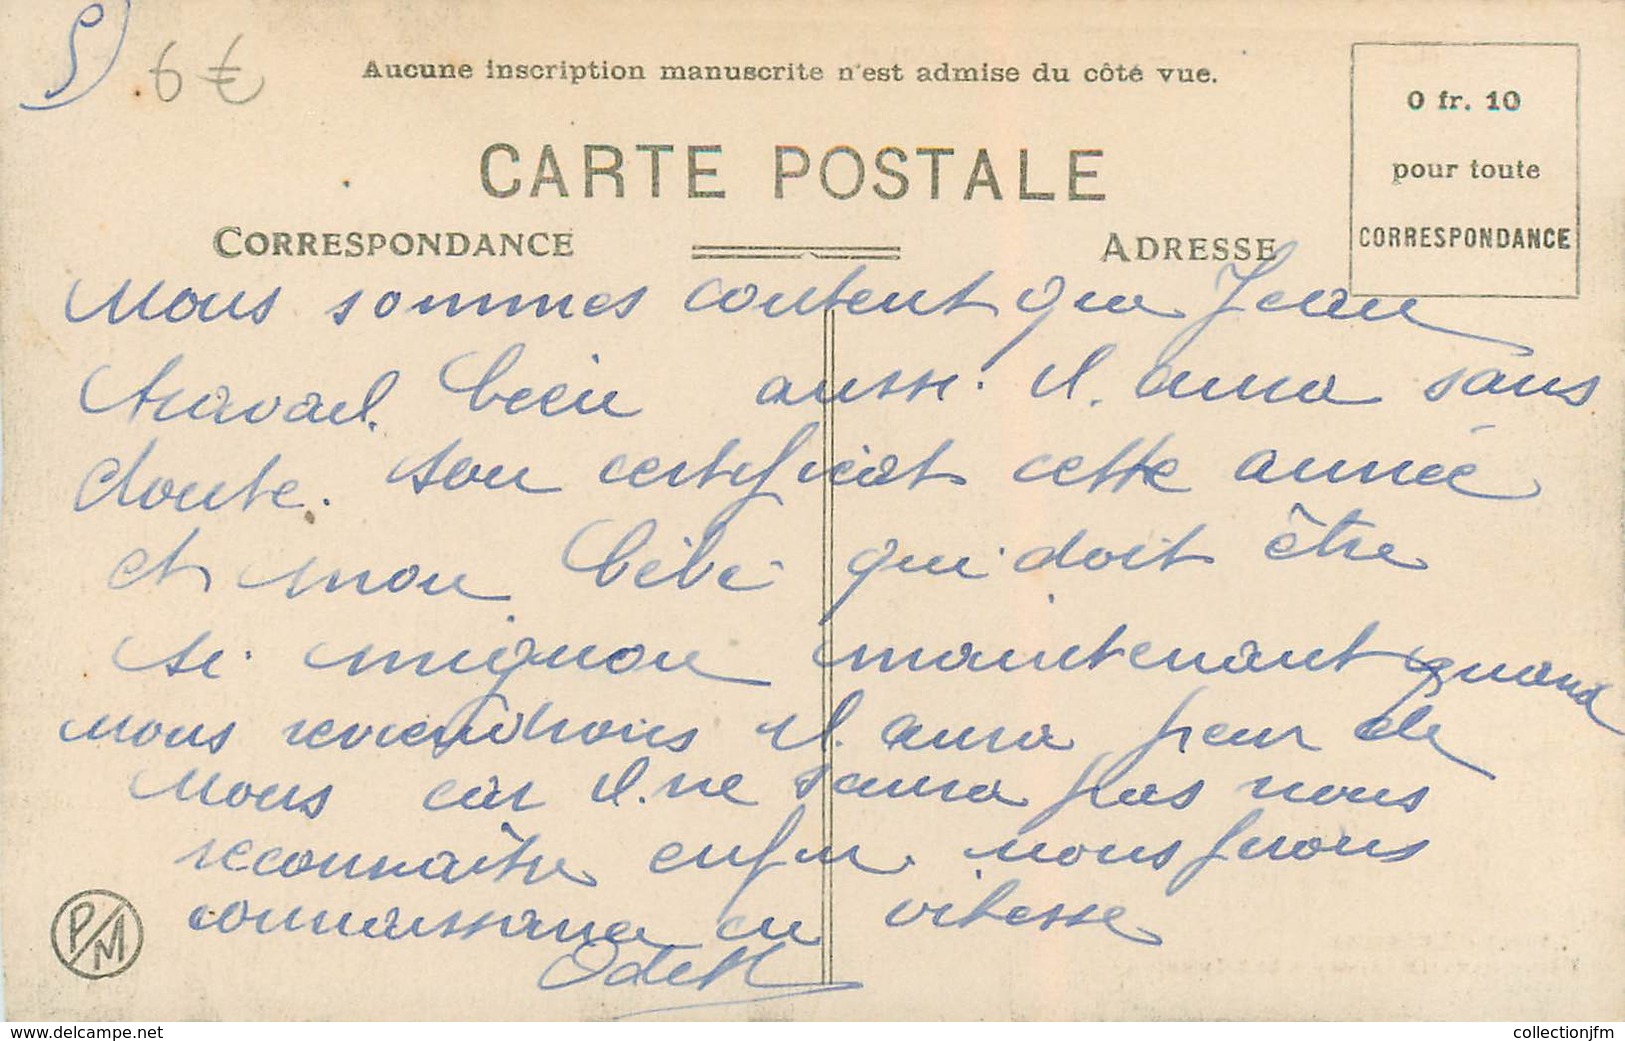 5)
6 €
Aucune inscription manuscrite n'est admise du côté vue.
0 fr. 10
pour toute
CORRESPONDANCE
CARTE POSTALE
CORRESPONDANCE
ADRESSE
Nous sommes content que Jean
travail bien aussi. il aura sans
doute. son certificat cette année
et mon bébé qui doit être
si mignon maintenant quand
nous reviendrons il aura peur de
nous car il ne saura pas nous
reconnaître enfin nous ferons
connaissance en vitesse
Odette
PM
www.delcampe.net
collectionjfm